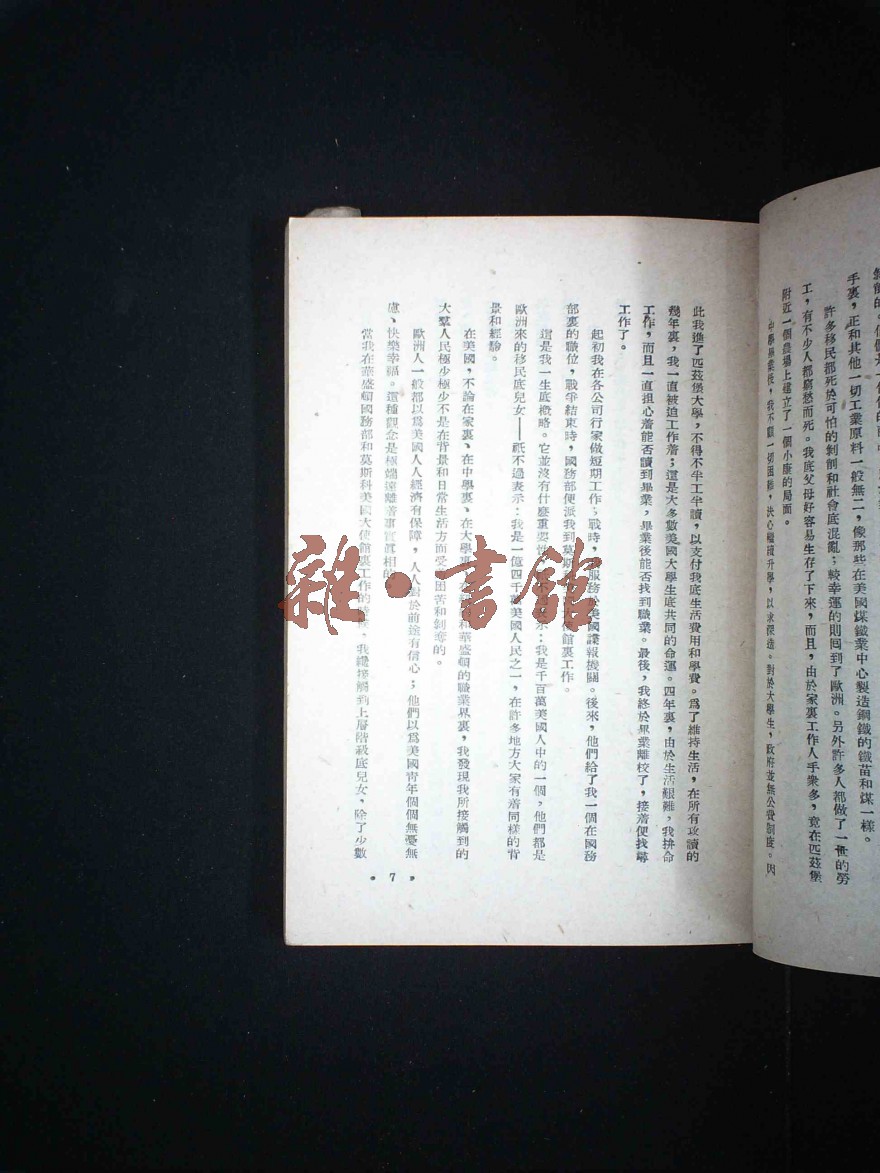 手裏，正和其他一切工業原料一般無二，像那些在美國煤鐵業中心製造鋼鐵的鐵苗和煤一樣。
許多移民都死於可怕的剝削和社會底混亂；較幸運的則囘到了歐洲。另外許多人都做了一世的勞
工，有不少人都窮愁而死。我底父母好容易生存了下來，而且，由於家裏工作人手衆多，竟在匹茲堡
附近一個農場上建立了一個小康的局面。
中學畢業後，我不顧一切困難，決心繼續升學，以求深造。對於大學生，政府並無公費制度。因
此我進了匹茲堡大學，不得不半工半讀，以支付我底生活費用和學費。爲了維持生活，在所有攻讀的
幾年裏，我一直被迫工作着；這是大多數美國大學生底共同的命運。四年裏，由於生活艱難，我拚命
工作，而且一直担心着能否讀到畢業，畢業後能否找到職業。最後，我終於畢業離校了，接着便找尋
工作了。
起初我在各公司行家做短期工作；戰時，服務於美國諜報機關。後來，他們給了我一個在國務
部裏的職位，戰爭結束時，國務部便派我到莫斯使館裏工作。
這是我一生底槪略。它並沒有什麼重要性示：我是千百萬美國人中的一個，他們都是
歐洲來的移民底兒女——祇不過表示：我是一億四千萬美國人民之一，在許多地方大家有着同樣的背
景和經驗。
在美國，不論在家裏、在中學裏、在大學裏和華盛頓的職業界裏，我發現我所接觸到的
大羣人民極少極少不是在背景和日常生活方面受困苦和剝奪的。
歐洲人一般都以爲美國人人經濟有保障，人人對於前途有信心；他們以爲美國靑年個個無憂無
慮、快樂幸福。這種觀念是極端遠離着事實眞相的
當我在華盛頓國務部和莫斯科美國大使館裏工作的，我纔接觸到上層階級底兒女，除了少數
• 7 •
雜·書館